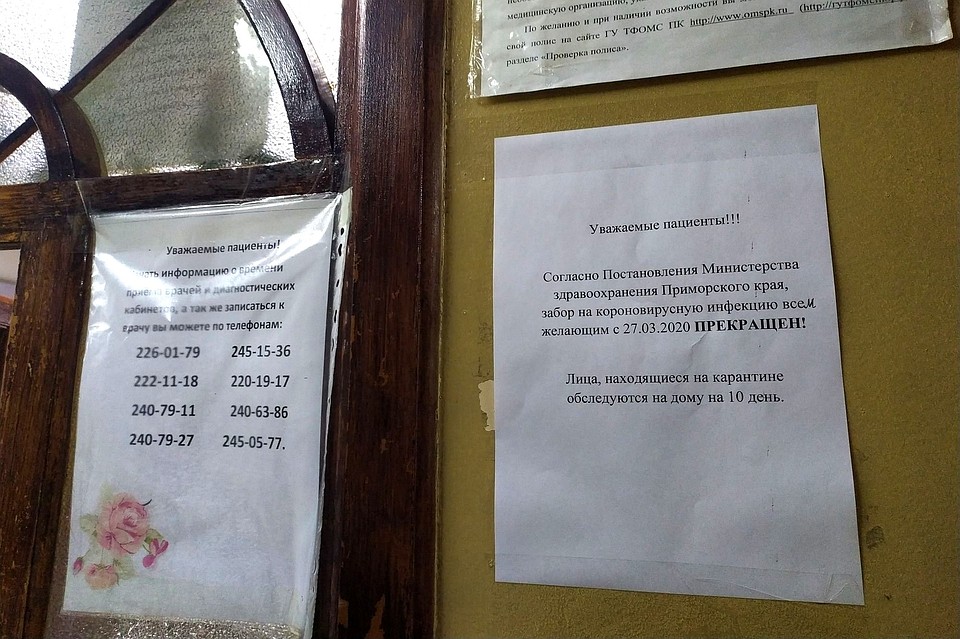 Уважаемые пациенты!
информацию о времени
приема врачей и диагностических
кабинетов, а так же записаться к
врачу вы можете по телефонам:
226-01-79 245-15-36
222-11-18 220-19-17
240-79-11 240-63-86
240-79-27 245-05-77.
медицинскую организацию,
По желанию и при наличии возможности вы
свой полис на сайте ГУ ТФОМС ПК http://www.omspk.ru
разделе «Проверка полиса».
Уважаемые пациенты!!!
Согласно Постановления Министерства
здравоохранения Приморского края,
забор на короновирусную инфекцию всем
желающим с 27.03.2020 ПРЕКРАЩЕН!
Лица, находящиеся на карантине
обследуются на дому на 10 день.